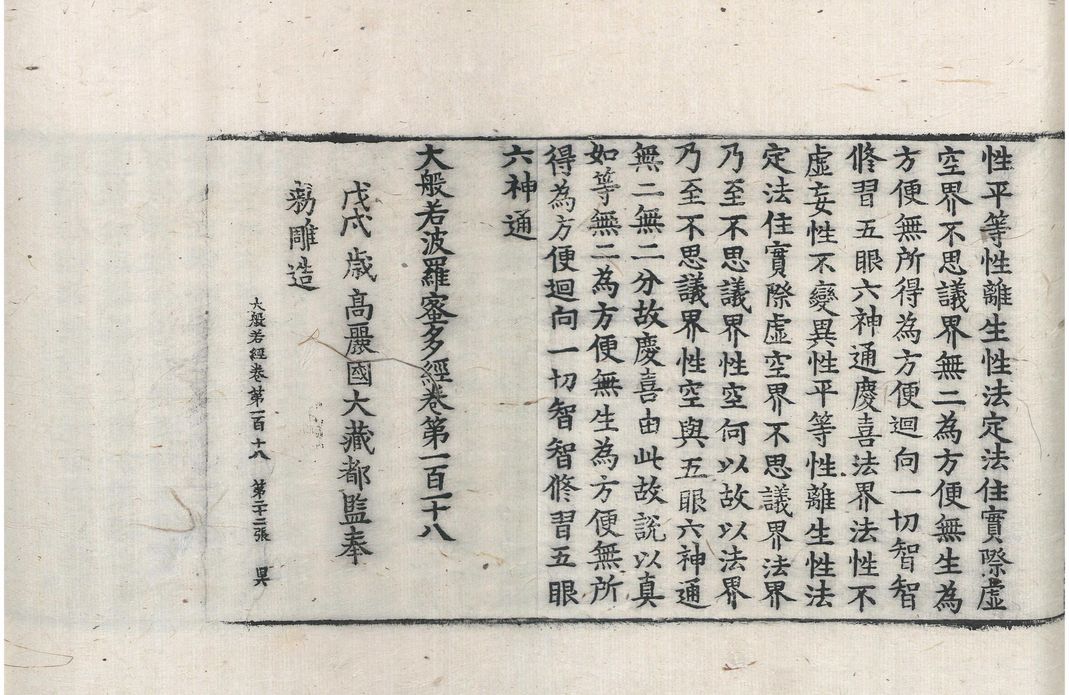 性平等性離生性法定法住實際虛
空界不思議界無二為方便無生為
方便無所得為方便迴向一切智智
修習五眼六神通慶喜法界法性不
虛妄性不變異性平等性離生性法
定法住實際虛空界不思議界法界
乃至不思議界性空何以故以法界
乃至不思議界性空與五眼六神通
無二無二分故慶喜由此故說以真
如等無二為方便無生為方便無所
得為方便迴向一切智智修習五眼
六神通
大般若波羅蜜多經卷第一百二十八
戊戌歲高麗國大藏都監奉
勑雕造
大般若經卷第一百十八 第二十二張 昃